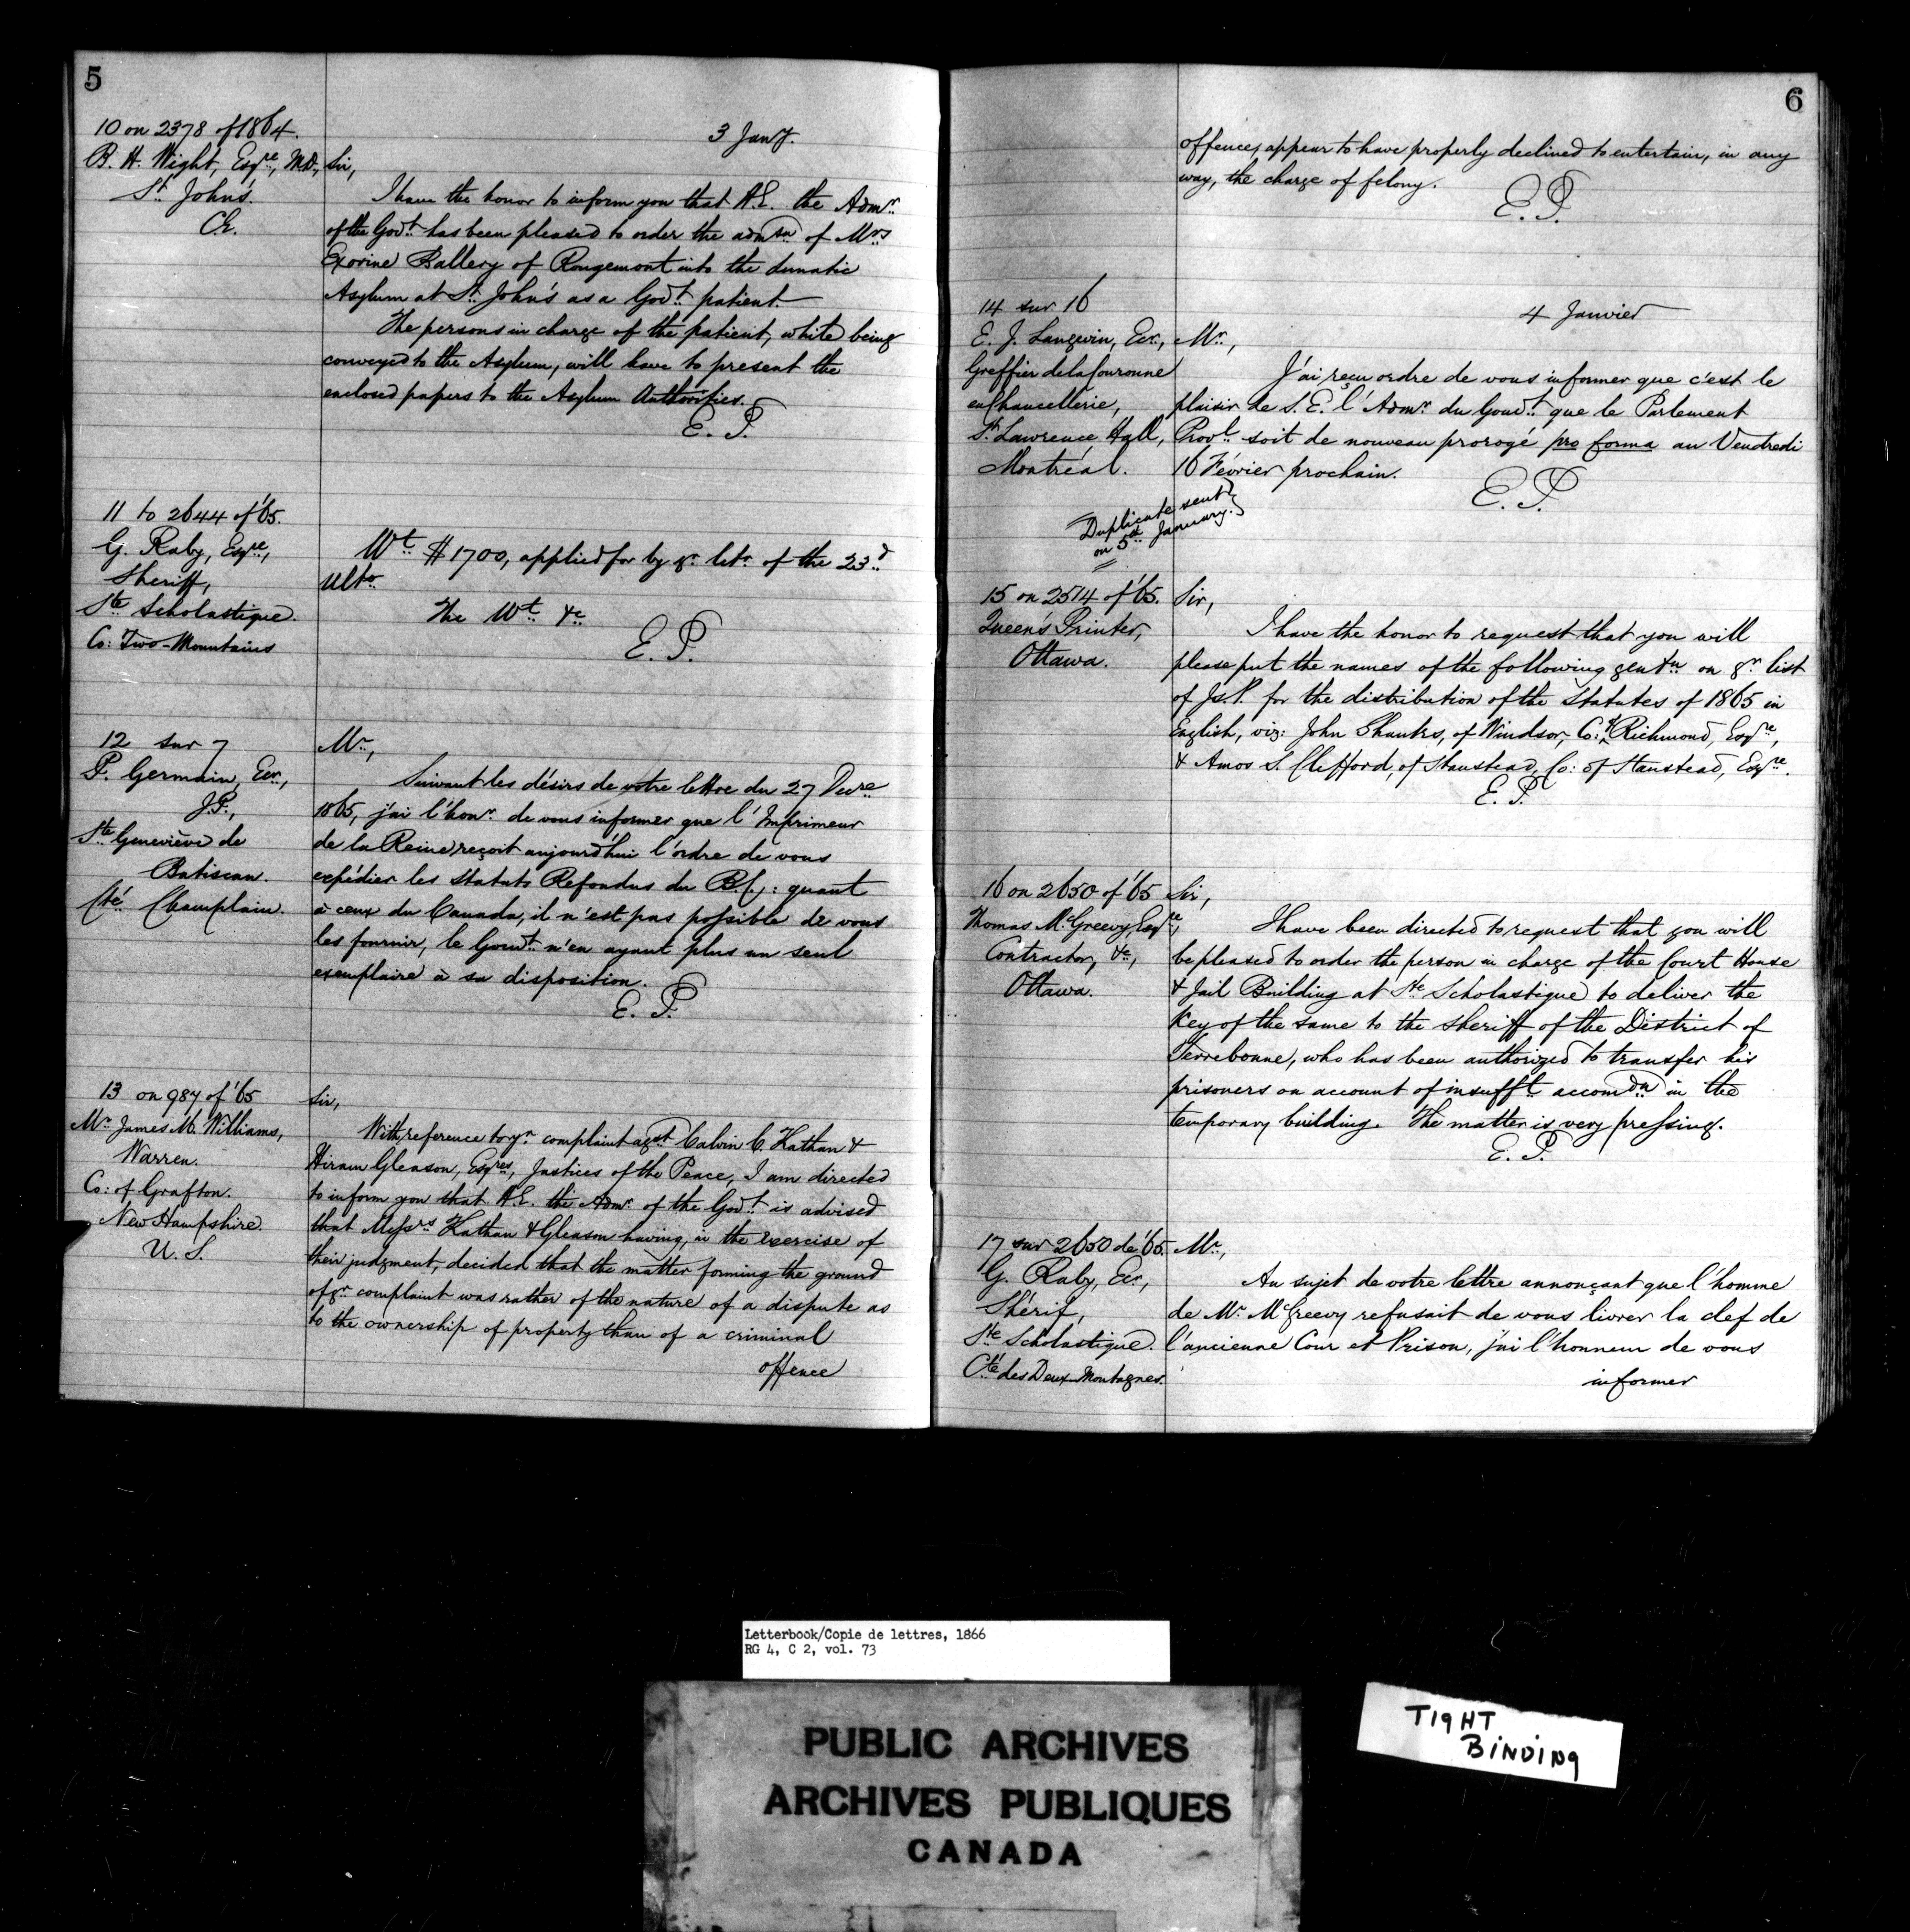 5
10 on 2378 of 1864.
3 Jany.
B. H. Wight, Esqre, M.D.,
St. John's.
C.E.
Sir,
I have the honor to inform you that H.E. the Admr.
of the Govt. has been pleased to order the admson of Mrs
Exorine Ballery of Rougemont into the Lunatic
Asylum at St. John's as a Govt. patient
The persons in charge of the patient, while being
conveyed to the Asylum, will have to present the
enclosed papers to the Asylum Authorities.
E. P.
11 to 2644 of '65.
G. Raby, Esqre,
Sheriff,
Ste Scholastique.
Co: Two-Mountains
Wt. $1700, applied for by yr. letr. of the 23d
ulto.
The Wt. &c
E. P.
12 sur 7
P. Germain, Ecr.,
J.P.,
Ste Geneviève de
Batiscan.
Cté Champlain.
Mr.,
Suivant les désirs de votre lettre du 27 Decre
1865, j'ai l'honr. de vous informer que l'Imprimeur
de la Reine reçoit aujourd'hui l'ordre de vous
expédier les Statuts Refondus du B.C.: quant
à ceux du Canada, il n'est pas possible de vous
les fournir, le Gouvt. n'en ayant plus un seul
exemplaire à sa disposition.
E. P.
13 on 987 of '65
Mr. James M. Williams,
Warren.
Co: of Grafton.
New Hampshire.
U. S.
Sir,
With reference to yr. complaint agst. Calvin C. Kathan &
Hiram Gleason, Esqres, Justices of the Peace, I am directed
to inform you that H.E. the Admr. of the Govt. is advised
that Messrs Kathan & Gleason having, in the exercise of
their judgment, decided that the matter forming the ground
of yr. complaint was rather of the nature of a dispute as
to the ownership of property than of a criminal
offence
6
offence, appear to have properly declined to entertain, in any
way, the charge of felony.
E. P.
14 sur 16
4 Janvier
E. J. Langevin, Ecr.,
Greffier de la Couronne
en Chancellerie,
St. Lawrence Hall,
Montréal.
Mr.,
J'ai reçu ordre de vous informer que c'est le
plaisir de S. E. l'Admr. du Gouvt. que le Parlement
Provl. soit de nouveau prorogé pro forma au Vendredi
16 Février prochain.
E. P.
Duplicate sent
on 5th January.
15 on 2514 of '65.
Queen's Printer,
Ottawa.
Sir,
I have the honor to request that you will
please put the names of the following gentn. on yr. list
of Js.P. for the distribution of the Statutes of 1865 in
English, viz: John Shanks, of Windsor, Co: of Richmond, Esqre,
& Amos S. Clefford, of Stanstead, Co: of Stanstead, Esqre.
E. P.
16 on 2650 of '65
Thomas McGreevy, Esqre,
Contractor, &c.,
Ottawa.
Sir,
I have been directed to request that you will
be pleased to order the person in charge of the Court House
& Jail Building at Ste Scholastique to deliver the
key of the same to the Sheriff of the District of
Terrebonne, who has been authorized to transfer his
prisoners on account of insufft. accomdn. in the
temporary building. The matter is very pressing.
E. P.
17 sur 2650 de '65.
G. Raby, Ecr.,
Shérif,
Ste Scholastique.
Cté. des Deux-Montagnes.
Mr.,
Au sujet de votre lettre annonçant que l'homme
de Mr. McGreevy refusait de vous livrer la clef de
l'ancienne Cour et Prison, j'ai l'honneur de vous
informer
Letterbook/Copie de lettres, 1866
RG 4, C 2, vol. 73
PUBLIC ARCHIVES
ARCHIVES PUBLIQUES
CANADA
TIGHT
BINDING